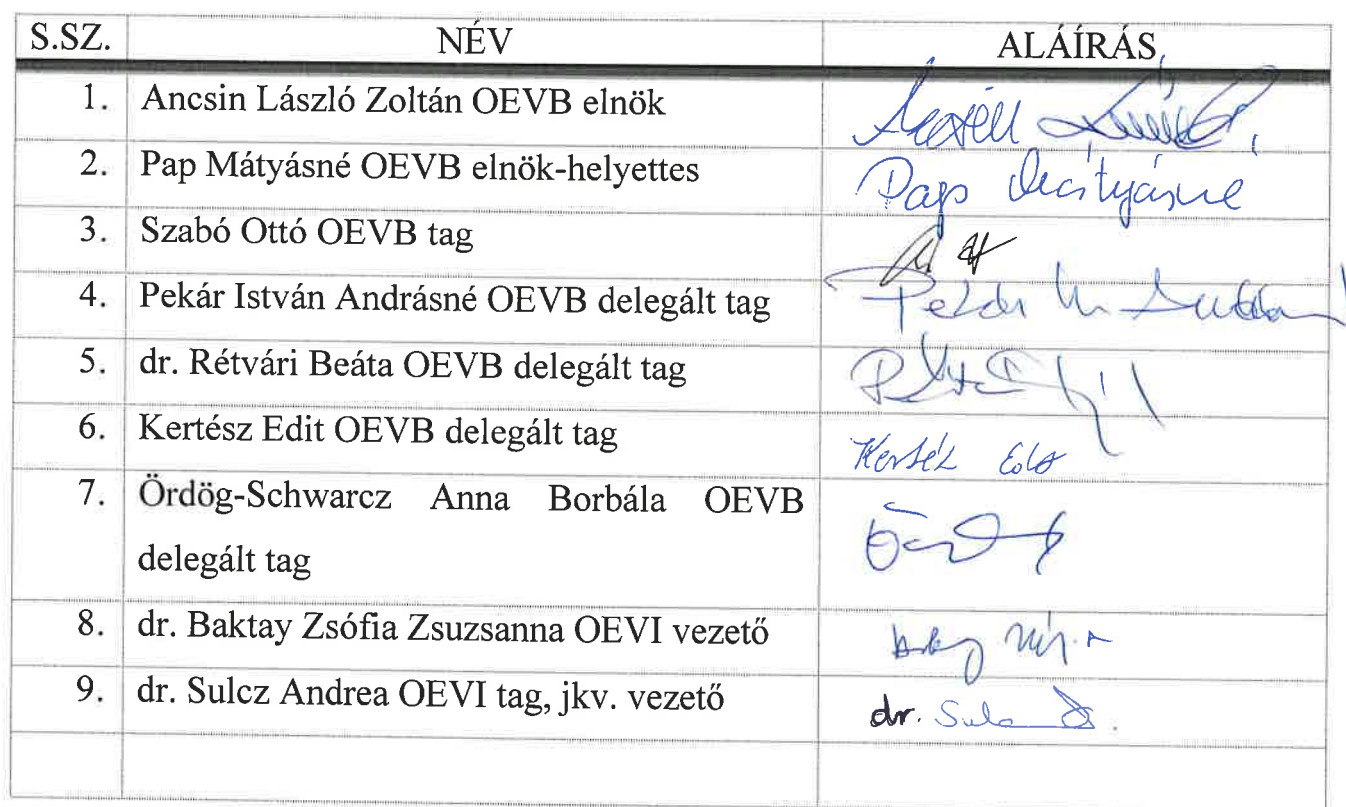 S.SZ. NÉV ALÁÍRÁS
1. Ancsin László Zoltán OEVB elnök
2. Pap Mátyásné OEVB elnök-helyettes Pap Mátyásné
3. Szabó Ottó OEVB tag
4. Pekár István Andrásné OEVB delegált tag
5. dr. Rétvári Beáta OEVB delegált tag
6. Kertész Edit OEVB delegált tag
7. Ördög-Schwarcz Anna Borbála OEVB
delegált tag
8. dr. Baktay Zsófia Zsuzsanna OEVI vezető
9. dr. Sulcz Andrea OEVI tag, jkv. vezető dr.